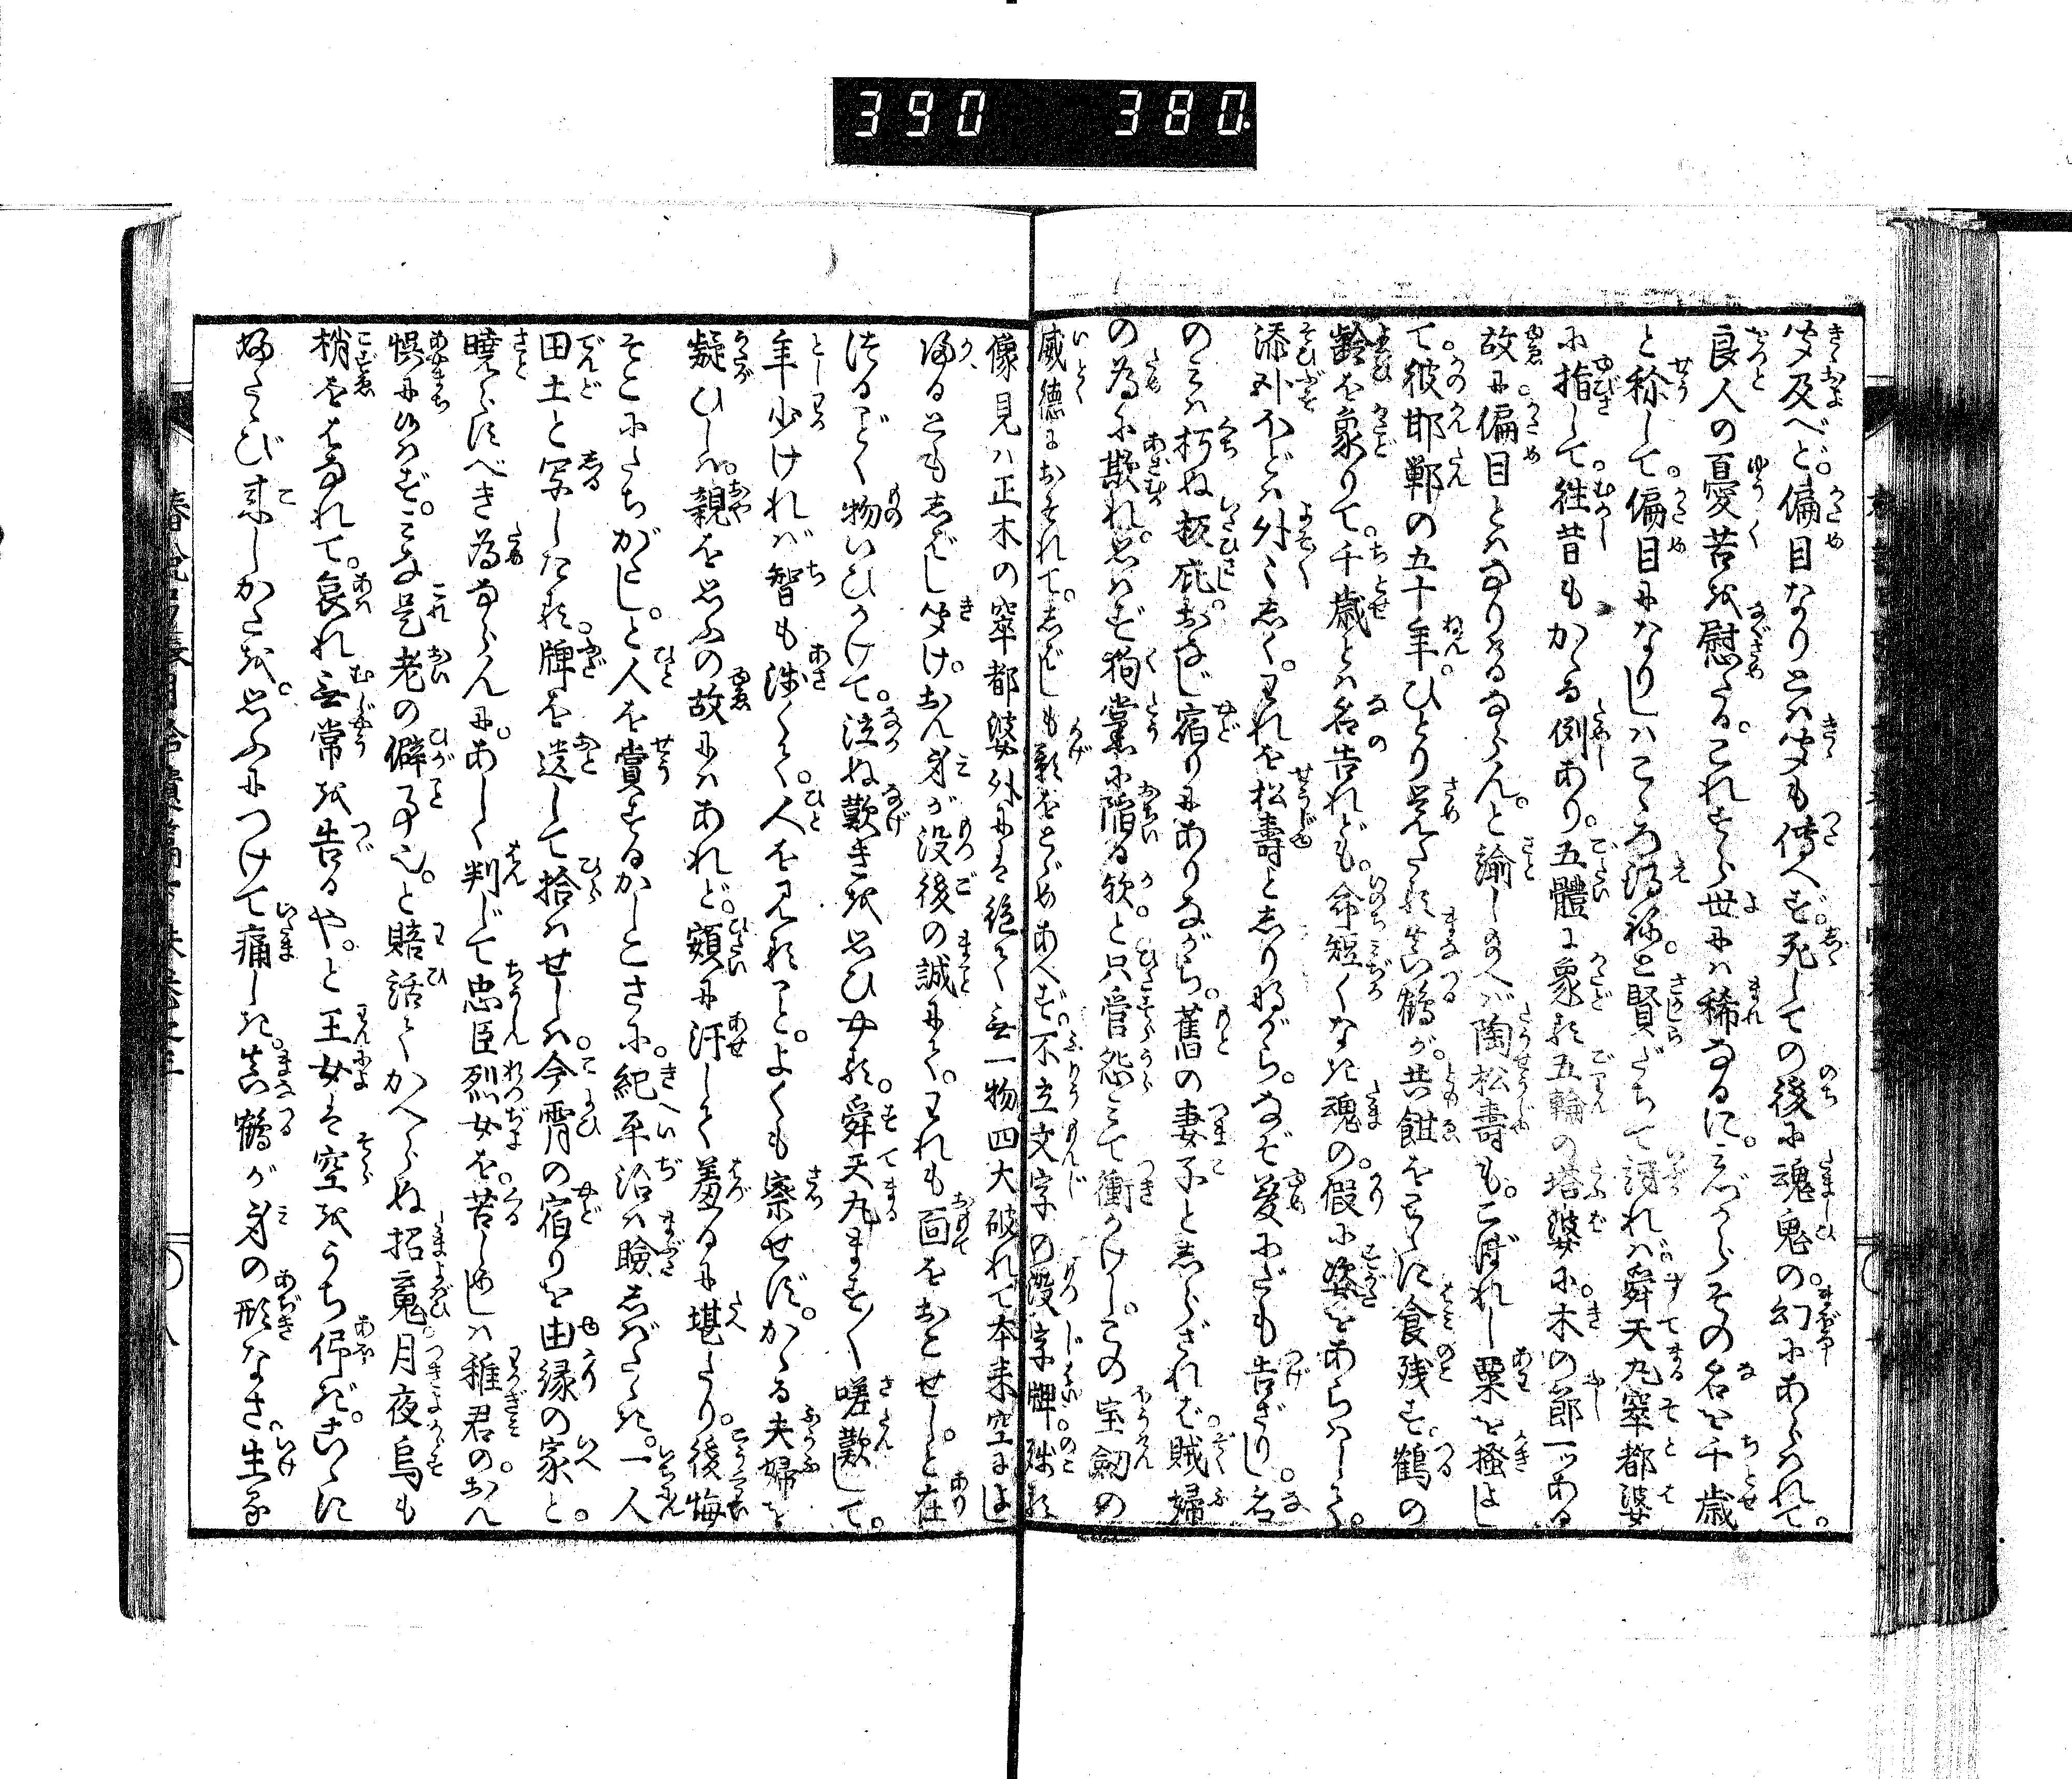 390 380.
聞及べど。偏目なりとは聞も傳へず。死しての後に魂鬼の幻にあらはれて。
良人の憂苦を慰たる。これすら世には稀なるに。みづからその名を千歳
と称して。偏目になりしはこゝろ得ね。と賢だちて詰れば舜天丸窣都婆
に指して。往昔もかゝる例あり。五體に象る五輪の塔婆に。木の節一ッある
故に。偏目とはなりけるならん。と諭し給へば陶松壽も。こぼれし粟を掻よ
て。彼邯鄲の五十年。ひとり覚たる真鶴が。共餌をさへに食残す。鶴の
齢を象りて。千歳とは名告れども。命短くなき魂の。假に姿をあらはして。
添臥ふどは外〻しく。われを松壽としり好がら。など夢にだも告ざりし。名
のみは朽ぬ板庇。おなじ宿りにありながら。舊の妻子としらざれば。賊婦
の為に欺れ。思はず狗黨に陥る歟。と只管怨みて衝かけし。この宝劔の
威徳におそれて。しばしも影をとゞめあへず。不立文字の没字牌。殘る
像見は正木の窣都婆外には絶て無一物四大破れて本来空には
帰るともしばし聞け。おん身が没後の誠にて。われも面をおこせし。と在
けるごく物いひかけて。泣ぬ歎きを思ひやる。舜天丸ます〳〵嗟歎して。
年少ければ智も淺くて。人を見ること。よくも察せず。かゝる夫婦を
疑ひしは。親を思ふの故にはあれど。額に汗して羞るに堪たり。後悔
そこにたちがたし。と人を賞するかしこさに。紀平治は瞼しばたゝき。一人
田土と写したる。牌を遺して拾はせしは。今宵の宿りを由縁の家と。
曉らすべき為ならんに。あしく判じて忠臣烈女を。苦しめしは稚君のおん
悞に候はず。みな是老の僻事也。と賠話てかへらぬ招魂。月夜烏も
梢をはなれて。哀れ無常を告るや。と王女は空をうち仰ぎ。さらに
ふたゝび来しかたを。思ふにつけて痛しき。真鶴が身の形なさ。生る